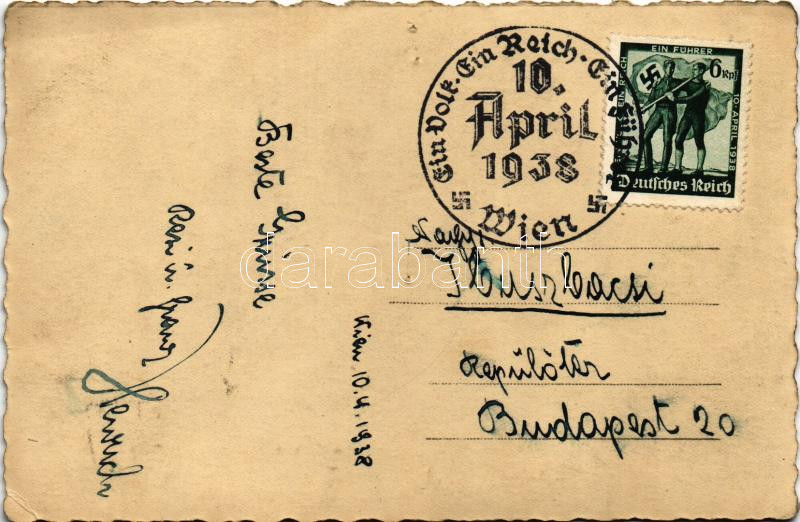 Ein Volk · Ein Reich · Ein Führer
10.
April
1938
Wien
EIN FÜHRER
EIN REICH
10. APRIL 1938
6 Rpf
Deutsches Reich
Nagy
Huszbacsi
Repülőtér
Budapest 20
Wien 10.4.1938
Beste Grüsse
Resi u.
darabanth